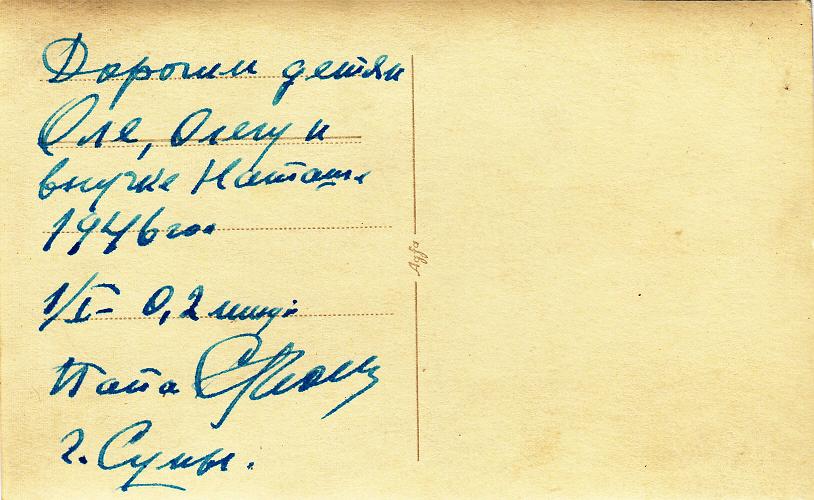 Дорогим детям
Оле, Олегу и
внучке Наташе
1946 год
1/I - 0,2 мину
Папа
г. Сумы.
Agfa